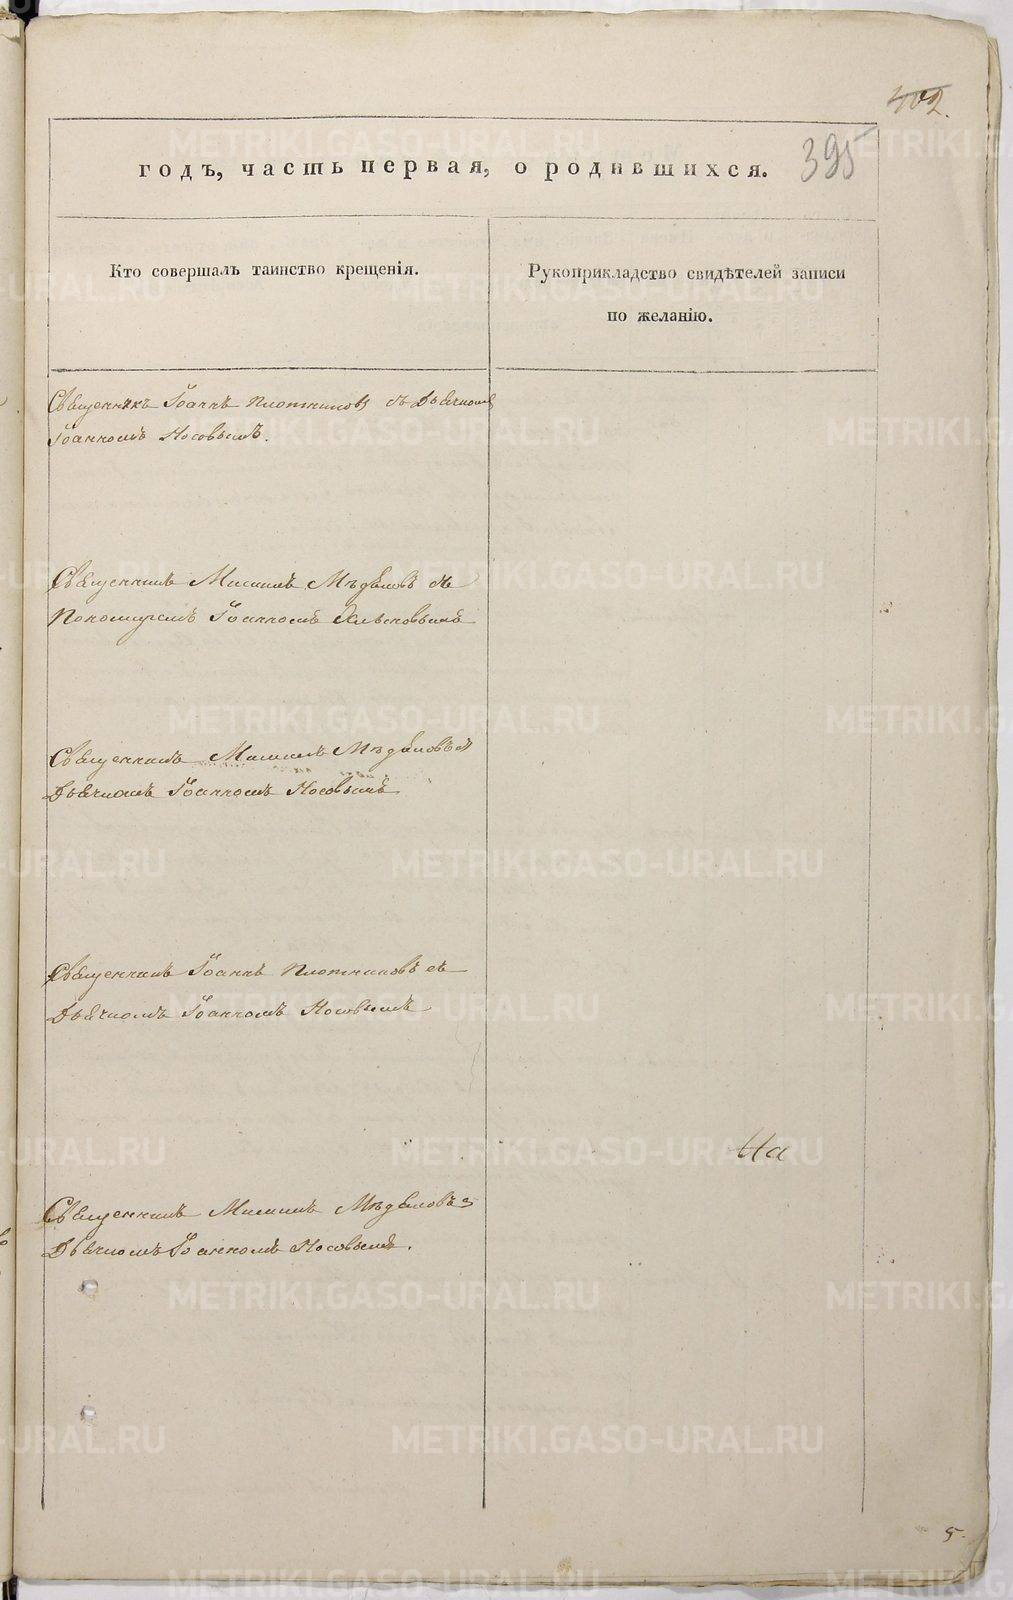 402.
395
годъ, часть первая, о родившихся.
Кто совершалъ таинство крещенія.
Рукоприкладство свидѣтелей записи
по желанію.
Священникъ Іоаннъ Плотниковъ съ Дьячкомъ
Іоанномъ Носовымъ.
Священникъ Михаилъ съ
Пономаремъ Іоанномъ
Священникъ Михаилъ съ
Дьячкомъ Іоанномъ Носовымъ
Священникъ Іоаннъ Плотниковъ съ
Дьячкомъ Іоанномъ Носовымъ
На
Священникъ Михаилъ съ
Дьячкомъ Іоанномъ Носовымъ.
5.
METRIKI.GASO-URAL.RU